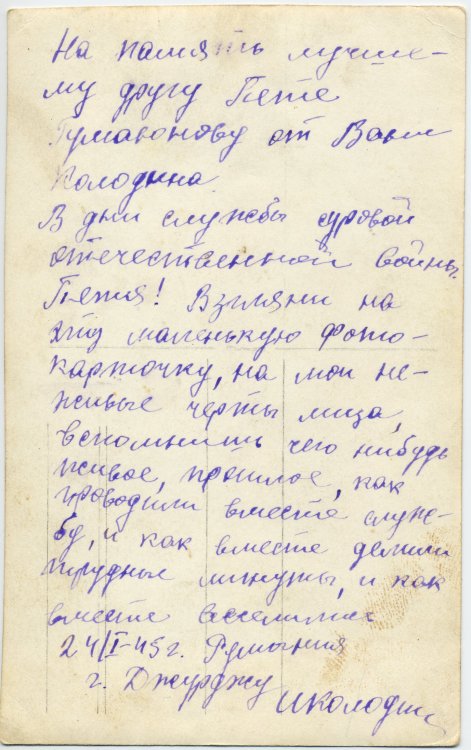 На память лучше-
му другу Пете
Гумаюнову от Вани
Колодина
В дни службы суровой
отечественной войны.
Петя! Взгляни на
эту маленькую фото-
карточку, на мои не-
живые черты лица,
вспомнишь чего нибудь
живое, прошлое, как
проводили вместе служ-
бу, и как вместе делили
трудные минуты, и как
вместе веселились
24/I-45г. Румыния
г. Джурджу
ИКолодин